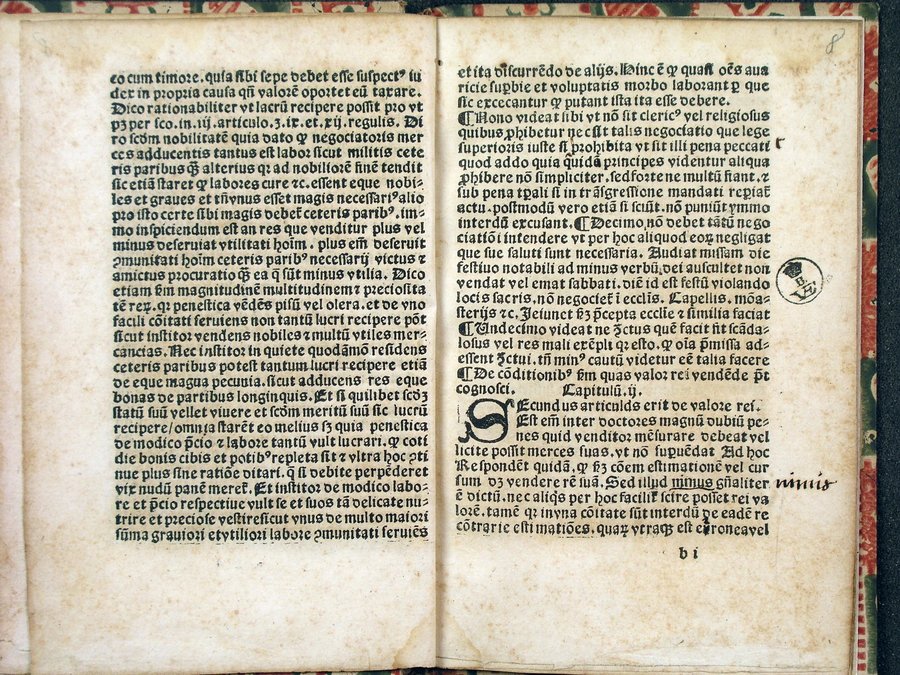 eo cum timore. quia sibi sepe debet esse suspectꝰ iu
dex in propria causa qñ valorē oportet eū taxare.
Dico rationabiliter vt lacrū recipere possit pro vt
pꝫ per sco. in .iij. articulo. 3. ix. et. xij. regulis. Di
ro scōm nobilitatē quia dato ꝙ negociatoris mer
ces adducentis tantus est labor sicut militis cete
ris paribus qꝫ alterius qr ad nobiliorē finē tendit
sic etiā staret ꝙ labores cure ⁊c. essent eque nobi⸗
les et graues et tñ vnus esset magis necessariꝰ alio
pro isto certe sibi magis debet ceteris paribꝰ. im⸗
mo inspiciendum est an res que venditur plus vel
minus deseruiat vtilitati hoīm. plus em̄ deseruit
ꝯmunitati hoīm ceteris paribꝰ necessarij victus ⁊
amictus procuratio qꝫ ea q̄ sūt minus vtilia. Dico
etiam ẜm magnitudinē multitudinem ⁊ preciosita
tē reꝝ. qr penestica vēdēs pisū vel olera. et de vno
facili cōitati seruiens non tantū lucri recipere pōt
sicut institor vendens nobiles ⁊ multū vtiles mer⸗
cancias. Nec institor in quiete quodāmō residens
ceteris paribus potest tantum lucri recipere etiā
de eque magna pecunia. sicut adducens res eque
bonas de partibus longinquis. Et si quilibet scōꝫ
statū suū vellet viuere et scōm meritū suū sic lucrū
recipere/omnia starēt eo melius sꝫ quia penestica
de modico p̄cio ⁊ labore tantū vult lucrari. ꝙ coti
die bonis cibis et potibꝰ repleta sit ⁊ vltra hoc ꝯti
nue plus sine ratiōe ditari. q̄ si debite perpēderet
vix nudū panē meret. Et institor de modico labo⸗
re et p̄cio respectiue vult se et suos tā delicate nu⸗
trire et preciose vestire sicut vnus de multo maiori
sūma grauiori et vtiliori labore ꝯmunitati seruiēs
8
et ita discurrēdo de alijs. Hinc ē ꝙ quasi oēs aua
ricie suꝑbie et voluptatis morbo laborant ꝑ que
sic excecantur ꝙ putant ista ita esse debere.
¶Nono videat sibi vt nō sit clericꝰ vel religiosus
quibus ꝓhibetur ne c sit talis negociatio que lege
superioris iuste si prohibita vt sit illi pena peccati
quod addo quia quidā principes videntur aliqua
ꝓhibere nō simpliciter. sed forte ne multū fiant. ⁊
sub pena tꝑali si in trāsgressione mandati reꝑiaē
actu. postmodū vero etiam si sciūt. nō puniūt ymmo
interdū excusant. ¶Decimo nō debet tātū nego
ciatiōi intendere vt per hoc aliquod eoꝝ negligat
que sue saluti sunt necessaria. Audiat missam die
festiuo notabili ad minus verbū dei auscultet non
vendat vel emat sabbati. diē id est festū violando
locis sacris. nō negocieť i ecclīis. Capellis. mōa⸗
sterijs ⁊c. Jeiunet ẜꝫ p̄cepta ecclīe ⁊ similia faciat
¶Undecimo videat ne ꝯctus quē facit fit scāda⸗
losus vel res mali exēpli qr esto. ꝙ oīa p̄missa ad⸗
essent ꝯctui. tñ minꝰ cautū videtur eē talia facere
¶De cōditionibꝰ ẜm quas valor rei vendēde p̄t
cognosci. Capitulū. ij.
SEcundus articulds erit de valore rei.
Est em̄ inter doctores magnū dubiū pe⸗
nes quid venditor mēsurare debeat vel
licite possit merces suas. vt nō supuēdat Ad hoc
Respondēt quidā. ꝙ ẜꝫ cōem estimationē vel cur
sum dꝫ vendere rē suā. Sed illud nimis gñaliter
nimis
ē dictū. nec aliq̄s per hoc faciliť scire posset rei va
lorē. tamē qr in vna cōitate sūt interdū de eadē re
cōtrarie estimatiōes. quaꝝ vtraqꝫ est erronea vel
b i